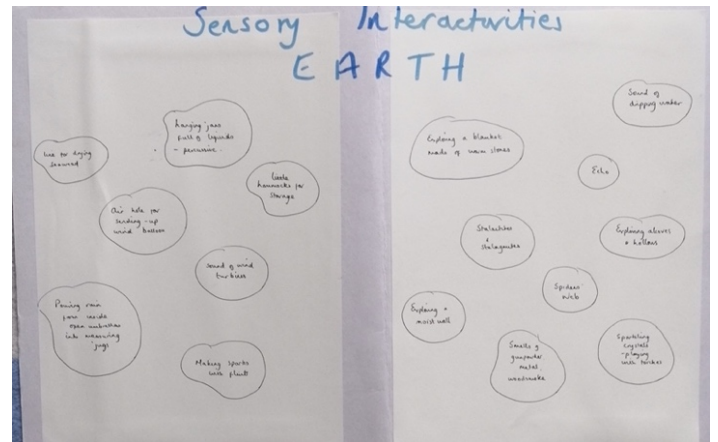 Sensory Interactivities
EARTH
Line for drying
seaweed
Hanging jars
full of liquids
- percussive.
Little
hammocks for
storage
Air hole for
sending-up
wind balloon
Sound of wind
turbines
Pouring rain
from inside
open umbrellas
into measuring
jugs
Making sparks
with plants
Sound of
dripping water
Exploring a blanket
made of warm stones
Echo
Stalactites
&
stalagmites
Exploring alcoves
& hollows
Spiders'
web
Exploring a
moist wall
Smells of
gunpowder
metal
woodsmoke
Sparkling
crystals
-playing
with torches